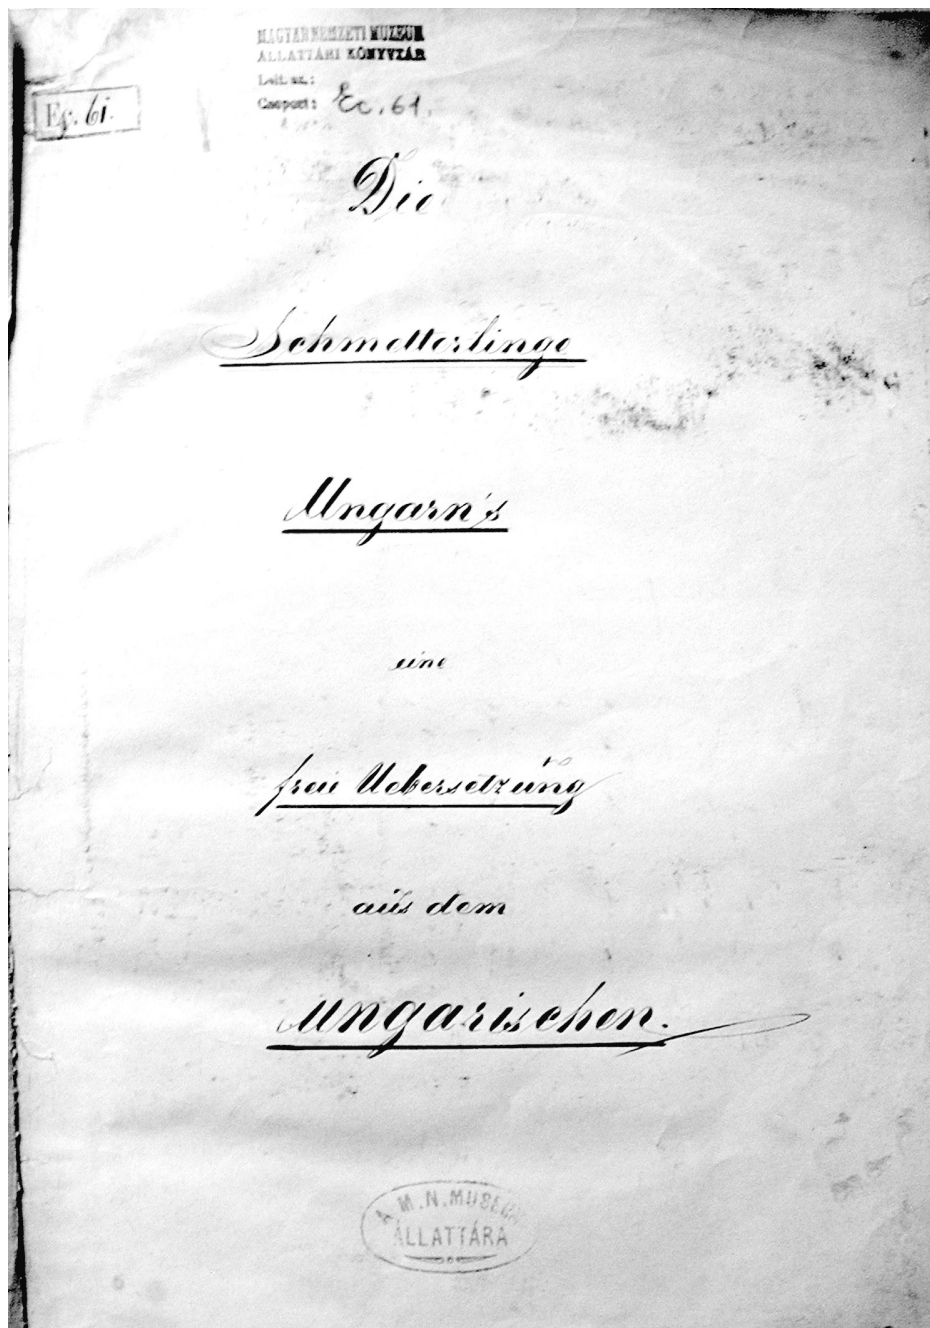 MAGYAR NEMZETI MUZEUM
ÁLLATTÁRI KÖNYVTÁR
Leit. sz.:
Csoport: Ec. 61.
Ec. 61.
Die
Schmetterlinge
Ungarn's
eine
freie Uebersetzung
aus dem
Ungarischen.
A M. N. MUSEUM
ÁLLATTÁRA